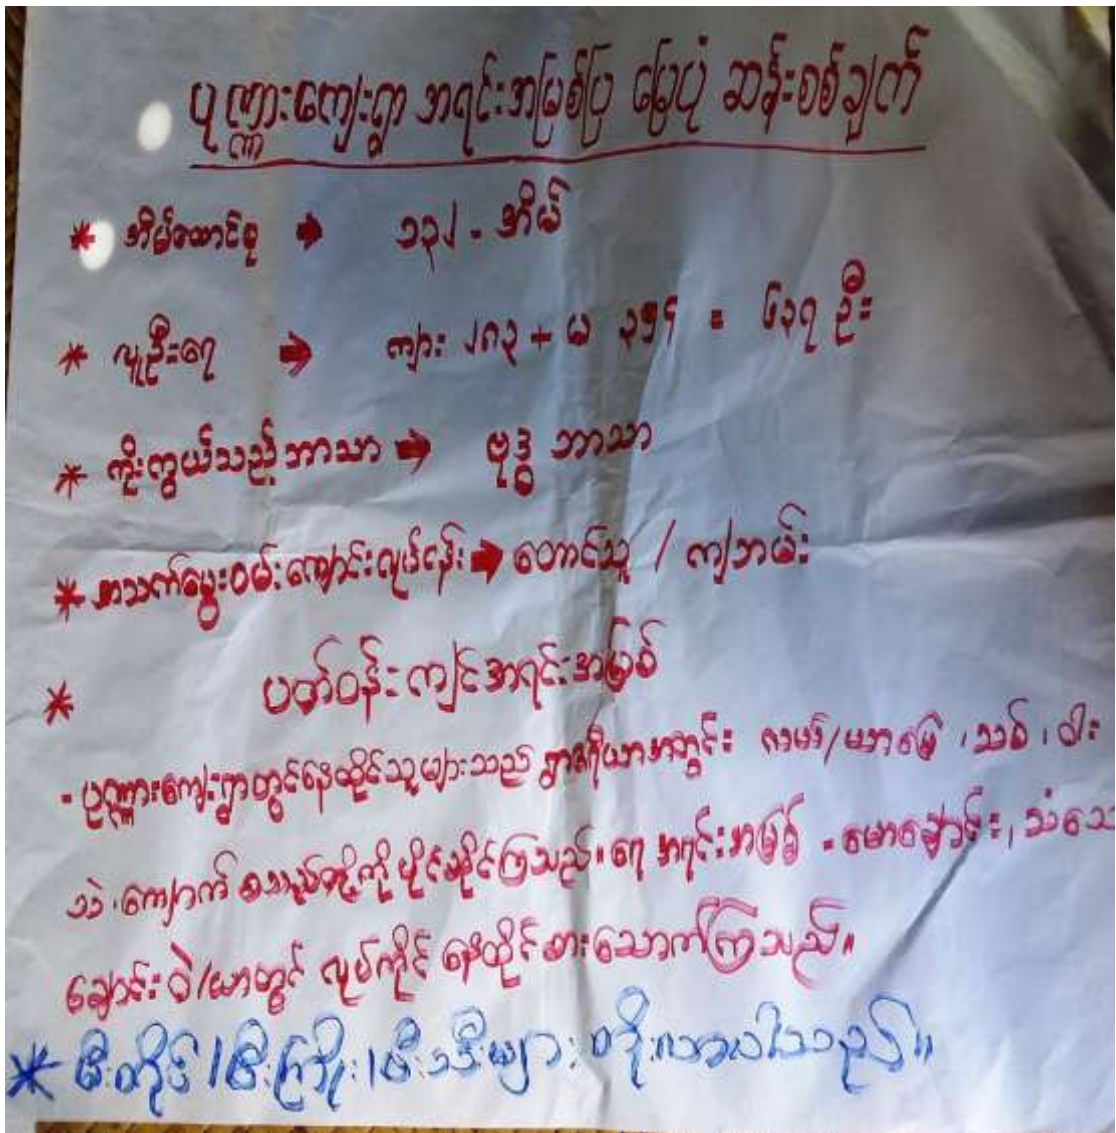 ပုဏ္ဏားကျေးရွာ အရင်းအမြစ်ပြ မြေပုံ ဆန်းစစ်ချက်
* အိမ်ထောင်စု → ၁၃၂ - အိမ်
* လူဦးရေ → ကျား ၂၈၃ + မ ၃၅၄ = ၆၃၇ ဦး
* ကိုးကွယ်သည့်ဘာသာ → ဗုဒ္ဓ ဘာသာ
* အသက်မွေးဝမ်းကျောင်းလုပ်ငန်း → တောင်သူ / ကျဘမ်း
* ပတ်ဝန်းကျင်အရင်းအမြစ်
- ပုဏ္ဏားကျေးရွာတွင်နေထိုင်သူများသည် ရွာဧရိယာအတွင်း လယ်/ယာမြေ ၊ သစ် ၊ ဝါး
သဲ ၊ ကျောက် စသည်တို့ကို ပိုင်ဆိုင်ကြသည်။ ရေ အရင်းအမြစ် - မောချောင်း, သံသေ
ချောင်း ဝဲ/ယာတွင် လုပ်ကိုင် နေထိုင်စားသောက်ကြသည်။
* မီးတိုင် / မီးကြိုး / မီးသီးများ တိုးလာပါသည်။